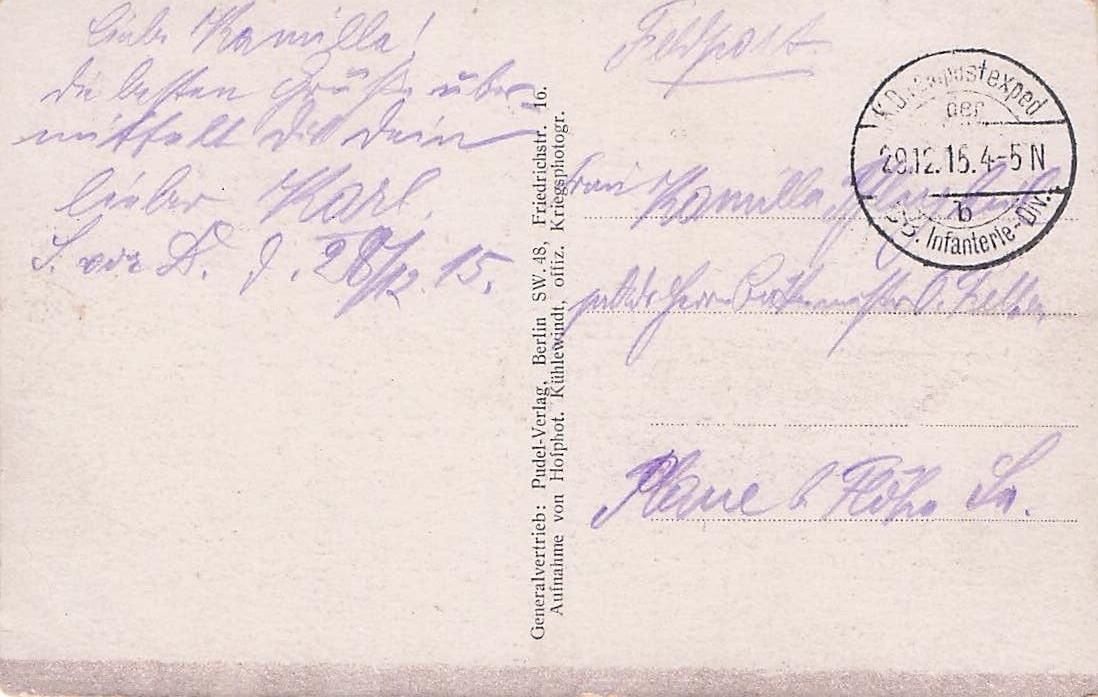 Liebe Kamilla!
die besten Grüße über-
mittelt Dir Dein
lieber Karl.
28/12. 15.
Generalvertrieb: Pudel-Verlag, Berlin SW. 48, Friedrichstr. 16.
Aufnahme von Hofphot. Kühlewindt, offiz. Kriegsphotogr.
Feldpost
K.D. Feldpostexped
der
29.12.15.4-5N
b
Infanterie-Div.
Frau Kamilla
Herrn
Plaue b. Flöha Sa.